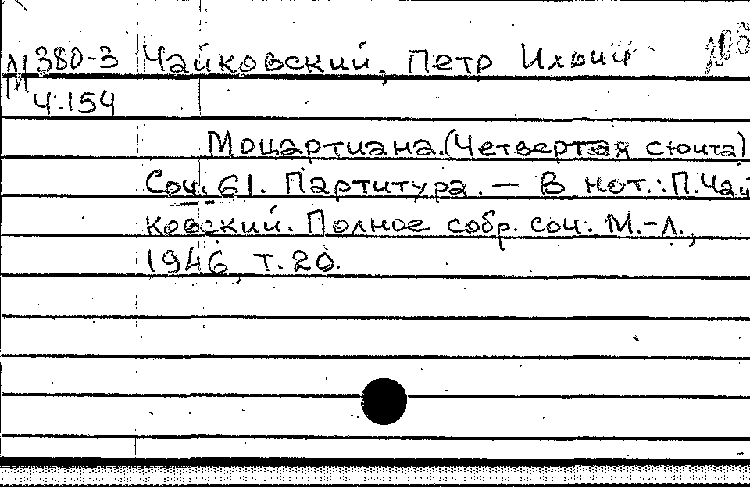 М 380-3 Чайковский, Петр Ильич
Ч-154
Моцартиана. (Четвертая сюита)
Соч. 61. Партитура. — В нот.: П. Чай
ковский. Полное собр. соч. М.-Л.,
1946, т. 20.